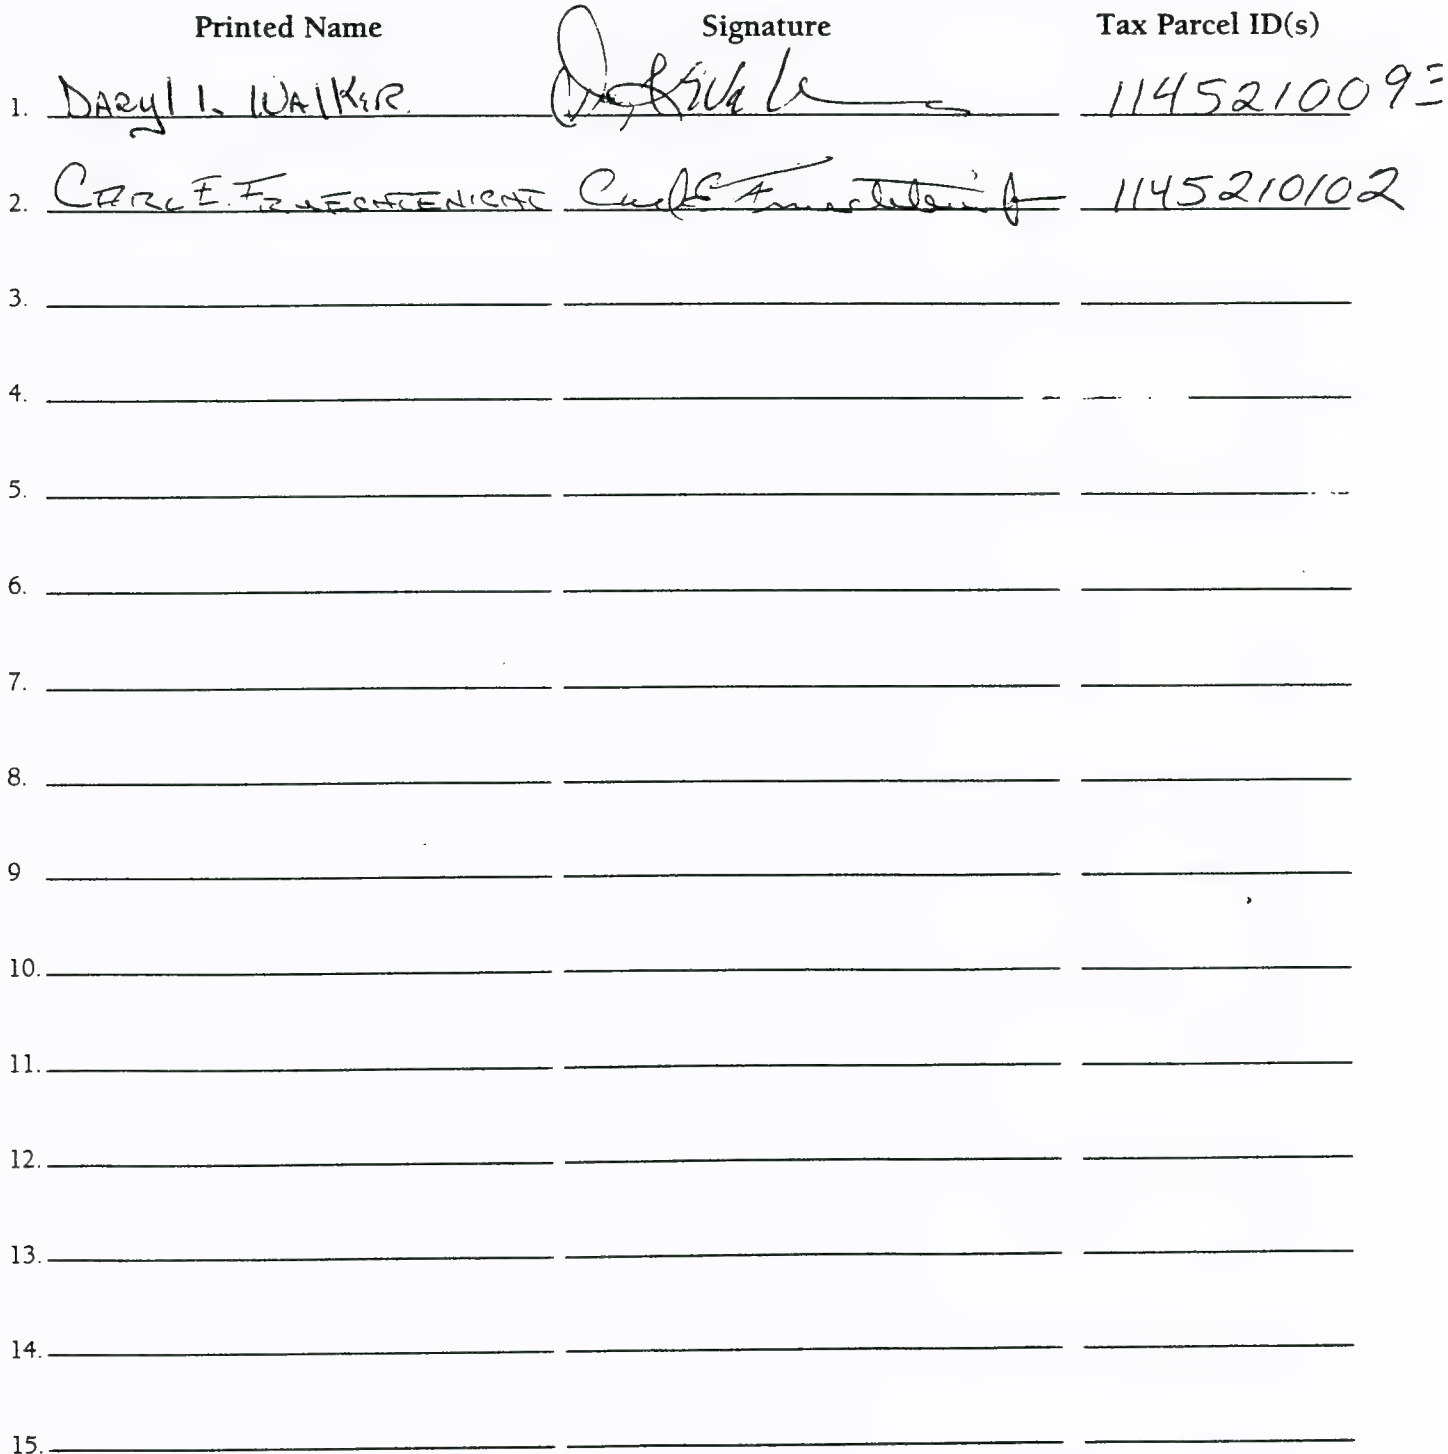 Printed Name Signature Tax Parcel ID(s)
1. DARyl L WAlKER 114521009
2. CARL E. FRUECHTENICHT 1145210102
3.
4.
5.
6.
7.
8.
9
10.
11.
12.
13.
14.
15.